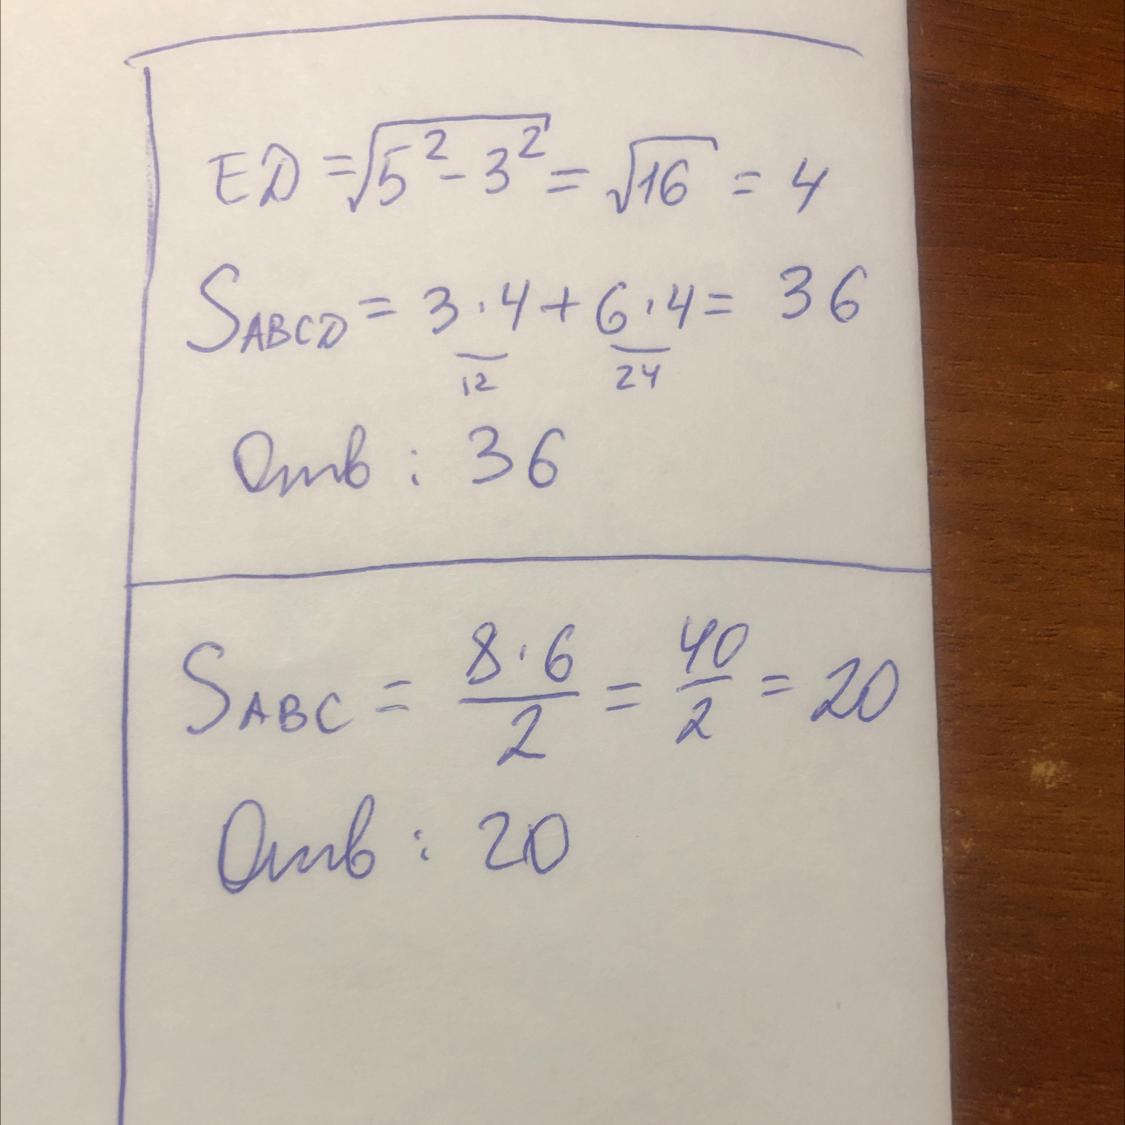 ED = √5² - 3² = √16 = 4
S ABCD = 3 · 4 + 6 · 4 = 36
12 24
Отв : 36
S ABC = 8 · 6 / 2 = 40 / 2 = 20
Отв : 20